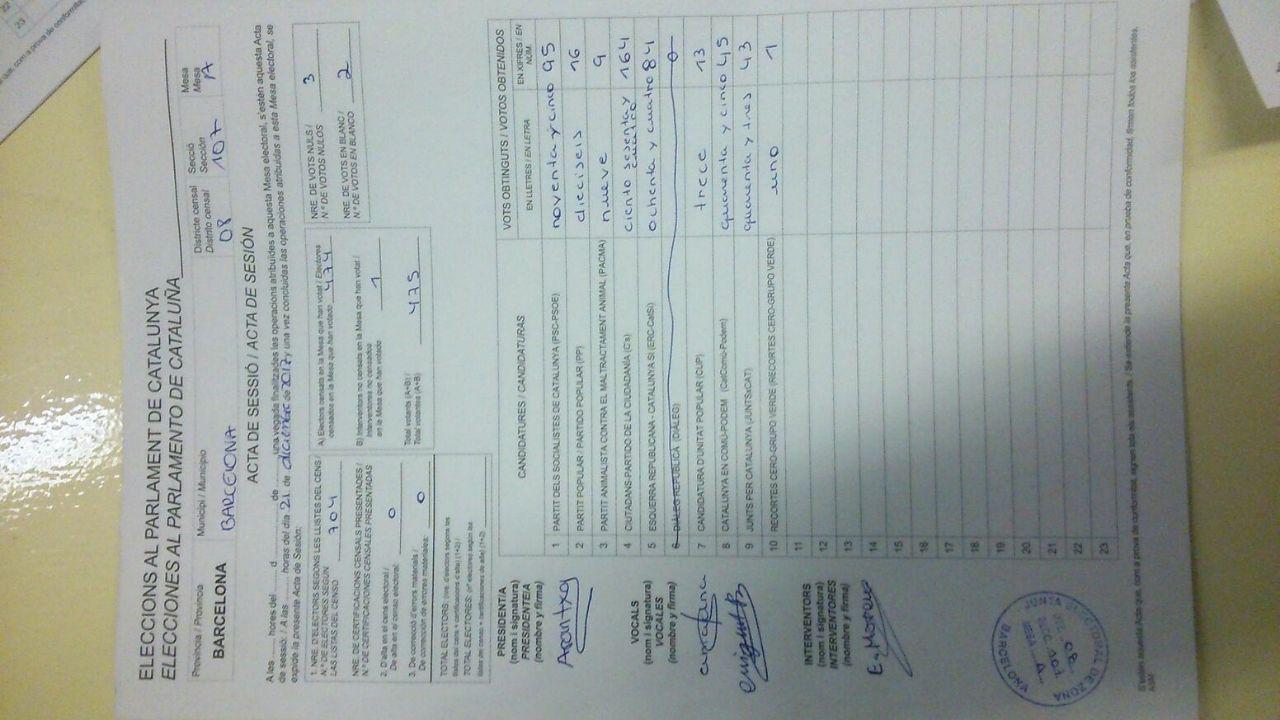 ELECCIONS AL PARLAMENT DE CATALUNYA
ELECCIONES AL PARLAMENTO DE CATALUÑA
Província / Provincia
BARCELONA
Municipi / Municipio
BARCELONA
Districte censal
Distrito censal
08
Secció
Sección
107
Mesa
Mesa
A
ACTA DE SESSIÓ / ACTA DE SESIÓN
A les ........ hores del ........ d ........ de ........, una vegada finalitzades les operacions atribuïdes a aquesta Mesa electoral, s'estén aquesta Acta
de sessió / A las ........ horas del día 21 de diciembre de 2017 y una vez concluidas las operaciones atribuidas a esta Mesa electoral, se
expide la presente Acta de Sesión:
1. NRE. D'ELECTORS SEGONS LES LLISTES DEL CENS /
N.º DE ELECTORES SEGÚN
LAS LISTAS DEL CENSO 704
NRE. DE CERTIFICACIONS CENSALS PRESENTADES /
N.º DE CERTIFICACIONES CENSALES PRESENTADAS
2. D'alta en el cens electoral /
De alta en el censo electoral: 0
3. De correcció d'errors materials /
De corrección de errores materiales: 0
TOTAL ELECTORS: (nre. d'electors segons les
llistes del cens + certificacions d'alta) (1+2) /
TOTAL ELECTORES: (nº electores según las
listas del censo + certificaciones de alta) (1+2)
A) Electors censats en la Mesa que han votat / Electores
censados en la Mesa que han votado 474
B) Interventors no censats en la Mesa que han votat /
Interventores no censados
en la Mesa que han votado 1
Total votants (A+B) /
Total votantes (A+B) 475
NRE. DE VOTS NULS /
N.º DE VOTOS NULOS 3
NRE. DE VOTS EN BLANC /
N.º DE VOTOS EN BLANCO 2
PRESIDENTIA
(nom i signatura)
PRESIDENTE/A
(nombre y firma)
VOCALS
(nom i signatura)
VOCALES
(nombre y firma)
INTERVENTORS
(nom i signatura)
INTERVENTORES
(nombre y firma)
CANDIDATURES / CANDIDATURAS
VOTS OBTINGUTS / VOTOS OBTENIDOS
EN LLETRES / EN LETRA
EN XIFRES / EN NÚM.
1 PARTIT DELS SOCIALISTES DE CATALUNYA (PSC-PSOE) noventa y cinco 95
2 PARTIT POPULAR / PARTIDO POPULAR (PP) dieciseis 16
3 PARTIT ANIMALISTA CONTRA EL MALTRACTAMENT ANIMAL (PACMA) nueve 9
4 CIUTADANS-PARTIDO DE LA CIUDADANÍA (C's) ciento sesenta y cuatro 164
5 ESQUERRA REPUBLICANA - CATALUNYA SÍ (ERC-CatSí) ochenta y cuatro 84
6 DIÀLEG REPÚBLICA (DIÀLEG) 0
7 CANDIDATURA D'UNITAT POPULAR (CUP) trece 13
8 CATALUNYA EN COMÚ-PODEM (CatComú-Podem) cuarenta y cinco 45
9 JUNTS PER CATALUNYA (JUNTSxCAT) cuarenta y tres 43
10 RECORTES CERO-GRUPO VERDE (RECORTES CERO-GRUPO VERDE) uno 1
11
12
13
14
15
16
17
18
19
20
21
22
23
JUNTA ELECTORAL DE ZONA
BARCELONA